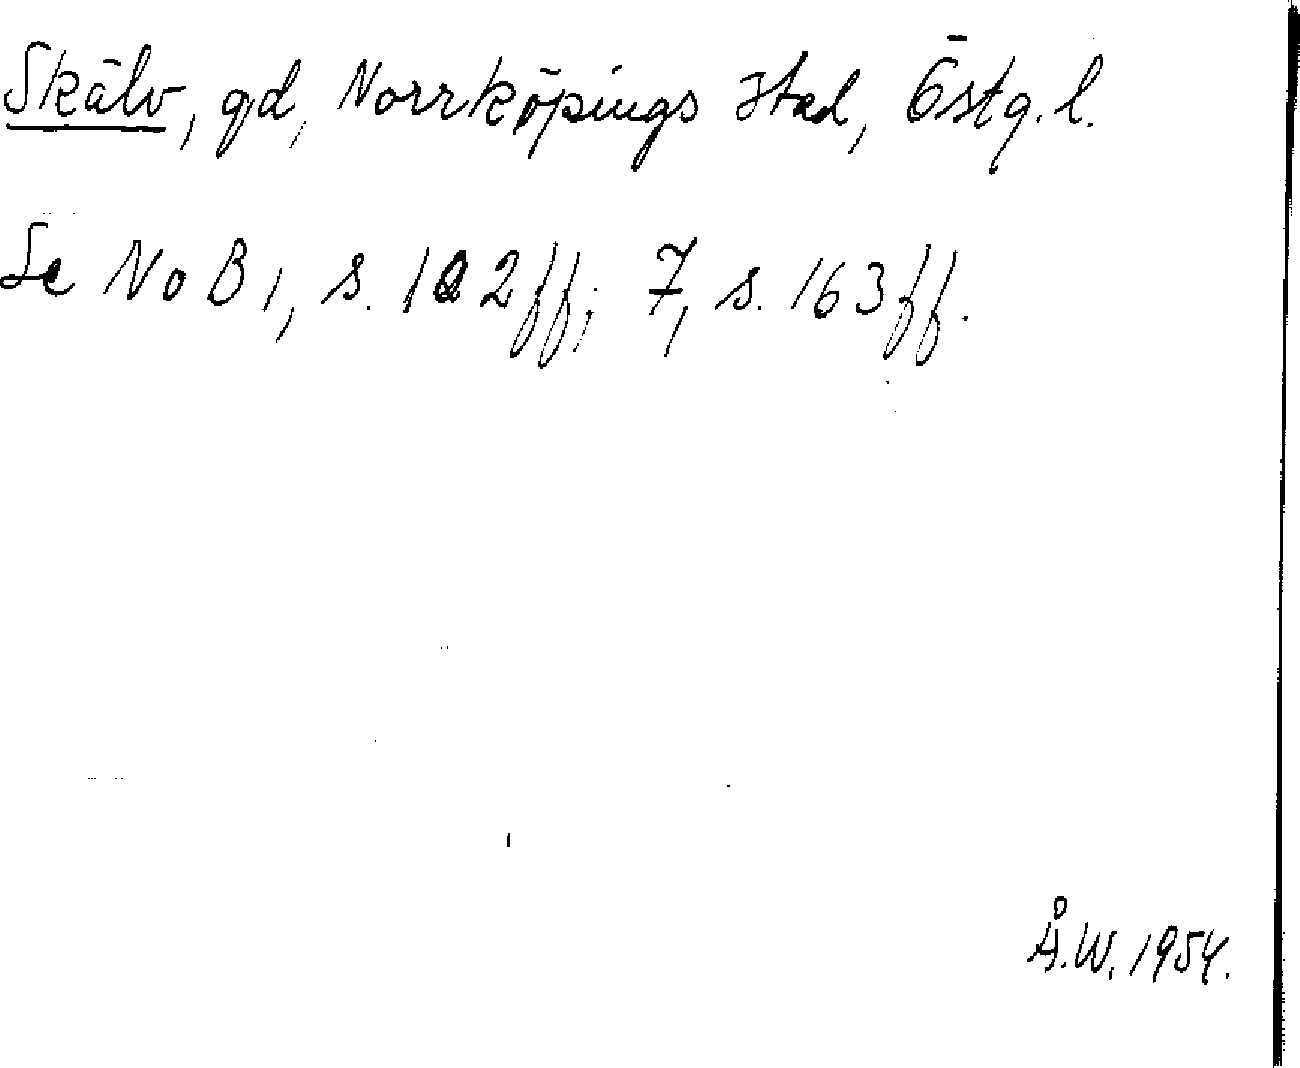 Skälv, gd, Norrköpings stad, Östg. l.
Se NoB 1, s. 122 ff; 7, s. 163 ff.
Å.W. 1954.